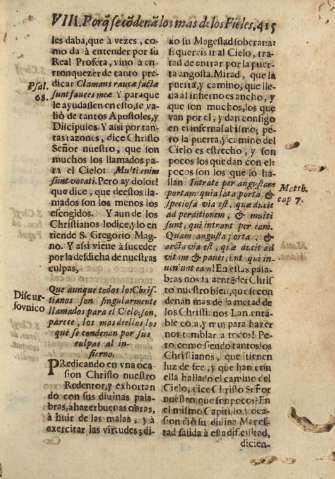 VIII. Porq̃ se cõdenã los mas de los Fieles. 415
les daba, que à vezes, co-
mo dà à entender por su
Real Profeta, vino à en-
ronquezer de tanto pre-
dicar
Psal.
68.
le ayudassen en esto, se va-
liò de tantos Apostoles, y
Discipulos. Y assi por tan-
tas razones, dice Christo
Señor nuestro, que son
muchos los llamados pa-
ra el Cielo: Multi enim
sunt vocati. Pero ay dolor!
que dice, que de estos lla-
mados son los menos los
escogidos. Y aun de los
Christianos lo dice, y lo en-
tiende S. Gregorio Mag-
no. Y assi viene à suceder
por la desdicha de nuestras
culpas,
Discur-
so vnico
Que aunque todos los Chris-
tianos son singularmente
llamados para el Cielo; son,
parece, los mas de ellos los
que se condenan por sus
culpas al in-
fierno.
PRedicando en vna oca-
sion Christo nuestro
Redentor, y exhortan
do con sus divinas pala-
bras, à hazer buenas obras,
à huir de las malas, y à
exercitar las virtudes; di-
xo su Magestad soberana:
si quereis ir al Cielo, en-
trad de entrar por la puer
ta angosta. Mirad, que la
puerta, y camino, que lle-
va al infierno es ancho, y
que son muchos, los que
van por el, y dan consigo
en el infernal abismo; pe-
ro la puerta, y camino del
Cielo es estrecho, y son
pocos los que dan con el:
pocos son los que lo ha-
llan. Intrate per angustam
portam: quia lata porta, &
Matth.
cap. 7.
speciosa via est, quæ ducit
ad perditionem, & multi
sunt, qui intrant per eam.
Quam angusta porta, &
arcta via est, quæ ducit ad
vitam & pauci sunt qui in-
veniunt eam! En estas pala-
bras nos
nuestro bien, que se con
denan mas de la metad de
los Christianos.
y muy para hazer-
nos temblar à todos! Pe-
ro como siendo tantos los
Christianos, que tienen
luz de fee, y que han con
ella hallado el camino del
Cielo, dice Christo Señor
nuestro, que son pocos? En
el mismo Capitulo, y oca-
sion diò su divina Mages-
tad salida à esta dificultad,
dicien-